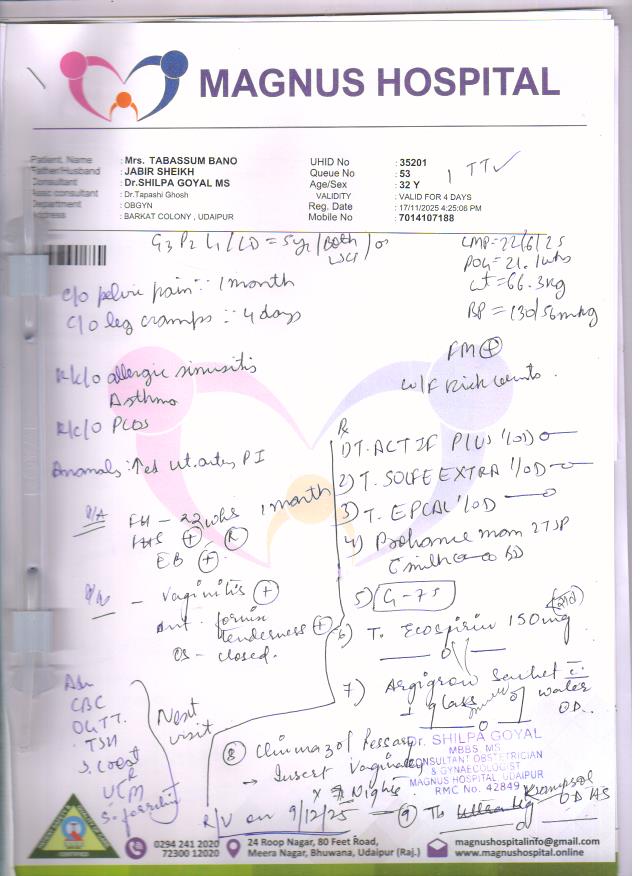 MAGNUS HOSPITAL
Patient, Name : Mrs. TABASSUM BANO
Father/Husband : JABIR SHEIKH
Consultant : Dr.SHILPA GOYAL MS
Assc consultant : Dr.Tapashi Ghosh
Department : OBGYN
Address : BARKAT COLONY , UDAIPUR
UHID No : 35201
Queue No : 53
Age/Sex : 32 Y
VALIDITY : VALID FOR 4 DAYS
Reg. Date : 17/11/2025 4:25:06 PM
Mobile No : 7014107188
1 TT✓
G3 P2 L1 / LD = 5yr / Both LSCS /
LMP=22/6/25
POG=21.1wks
wt=66.3kg
BP=130/56mmHg
c/o pelvic pain :: 1 month
c/o leg cramps :: 4 days
FM⊕
K/c/o allergic sinusitis
Asthma
K/c/o PCOS
Anomaly: ↑ed ut. artery PI
1 month
P/A FH - 22wks
FHS ⊕ R
EB ⊕
P/V - Vaginitis ⊕
Ant. fornix
tenderness ⊕
OS - closed.
Adv
CBC
OGTT
TSH
Next visit
Rx
1) T. ACTIF PLUS 1 OD
2) T. SOLFE EXTRA 1 OD
3) T. EPCAL 1 OD
4) Prohance mom 2 TSP
c milk BD
5) G-75
6) T. Ecosprin 150mg
7) Argigrow sachet i
1 glass of water
OD
8 Clinmazol Pessary
→ Insert Vaginally
x 7 Nights
R/V on 9/12/25
9 Tb Krampsol
OD HS
Dr. SHILPA GOYAL
MBBS, MS
CONSULTANT OBSTETRICIAN
& GYNAECOLOGIST
MAGNUS HOSPITAL, UDAIPUR
RMC No. 42849
0294 241 2020
72300 12020
24 Roop Nagar, 80 Feet Road,
Meera Nagar, Bhuwana, Udaipur (Raj.)
magnushospitalinfo@gmail.com
www.magnushospital.online